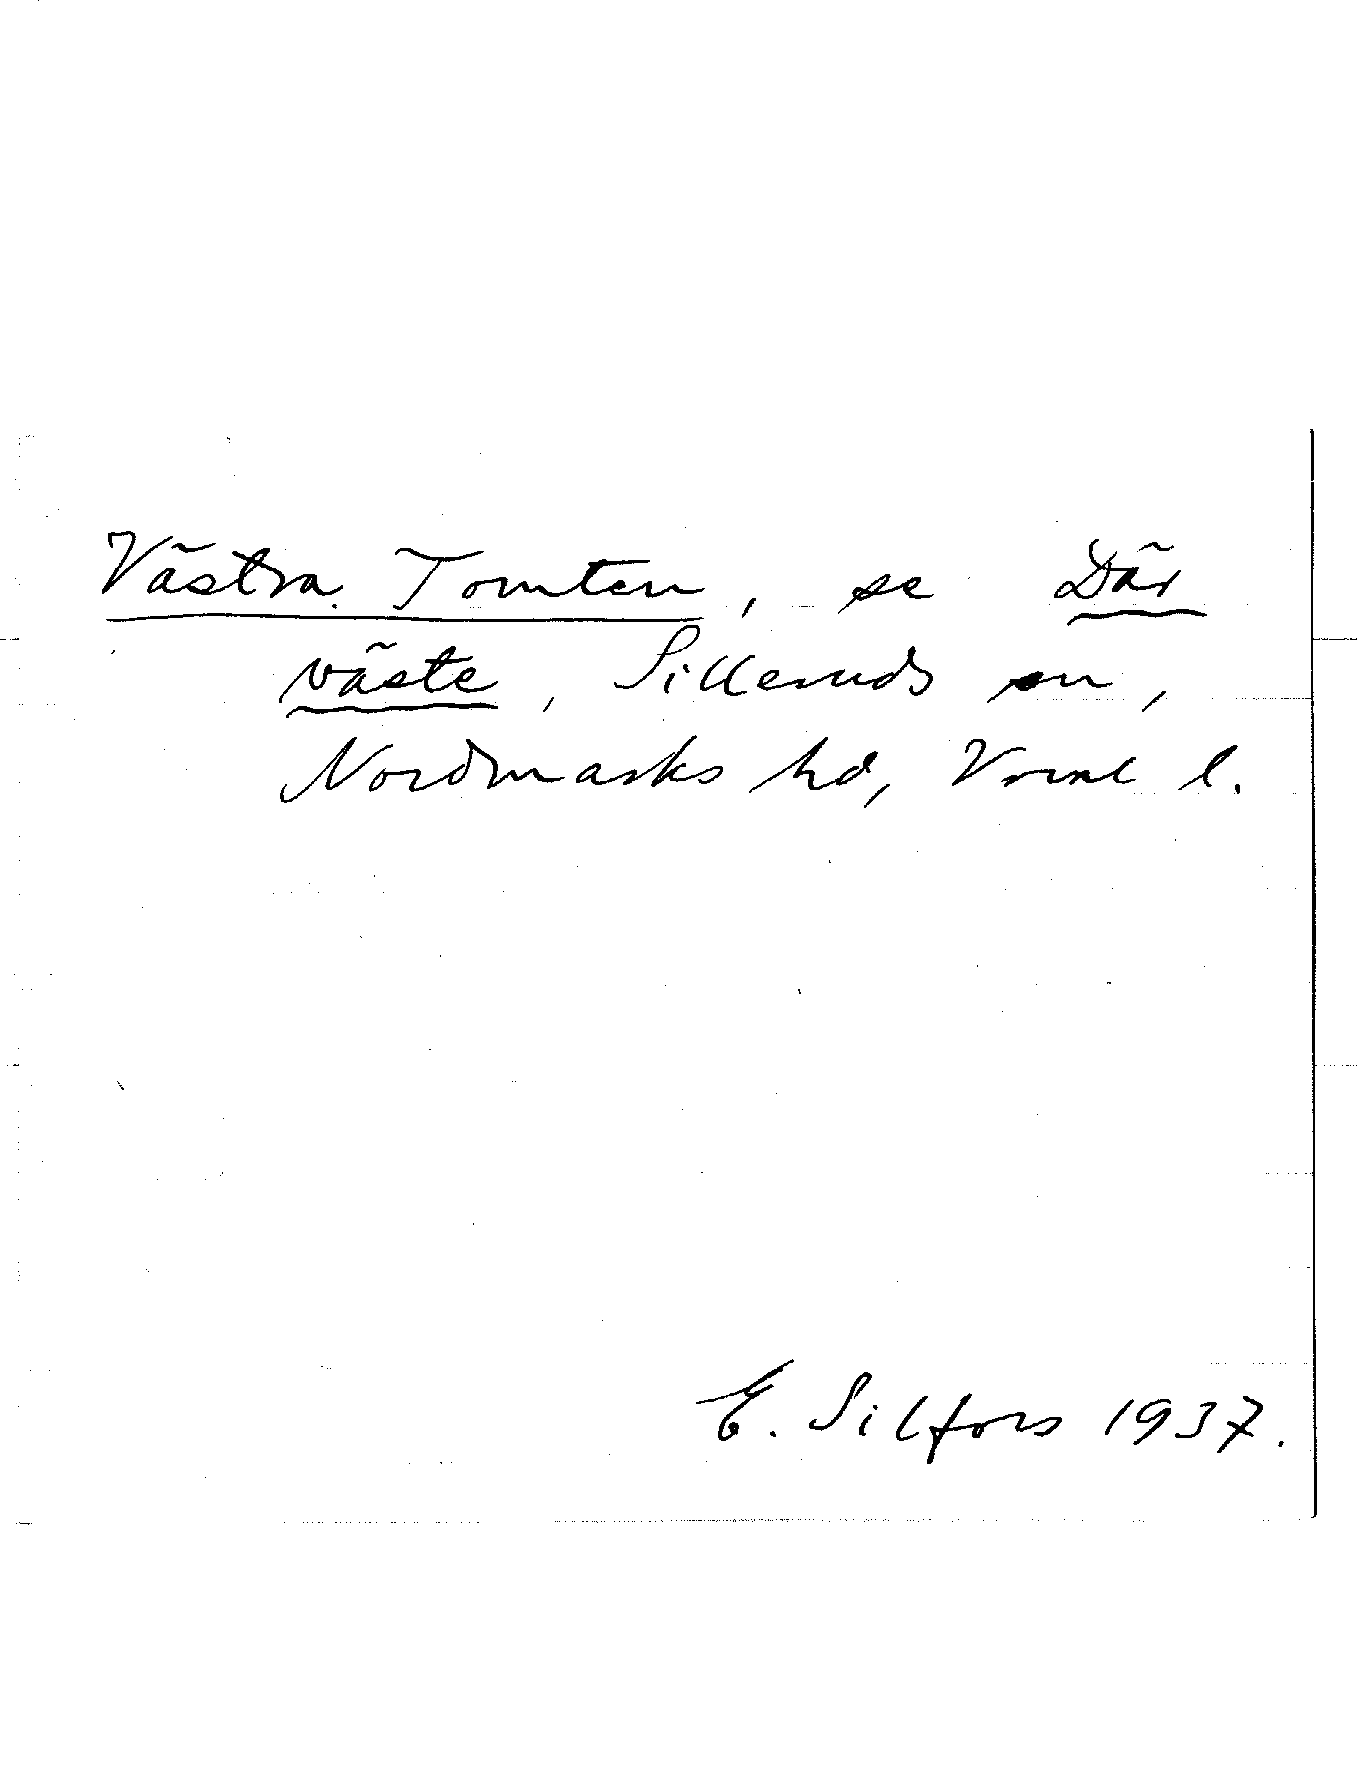 Västra Tomten, se Där
väste, Silleruds sn,
Nordmarks hd, Vrml l.
E. Silfors 1937.